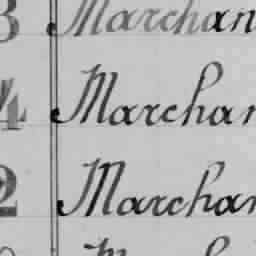 3 Marchan
4 Marchan
2 Marchan